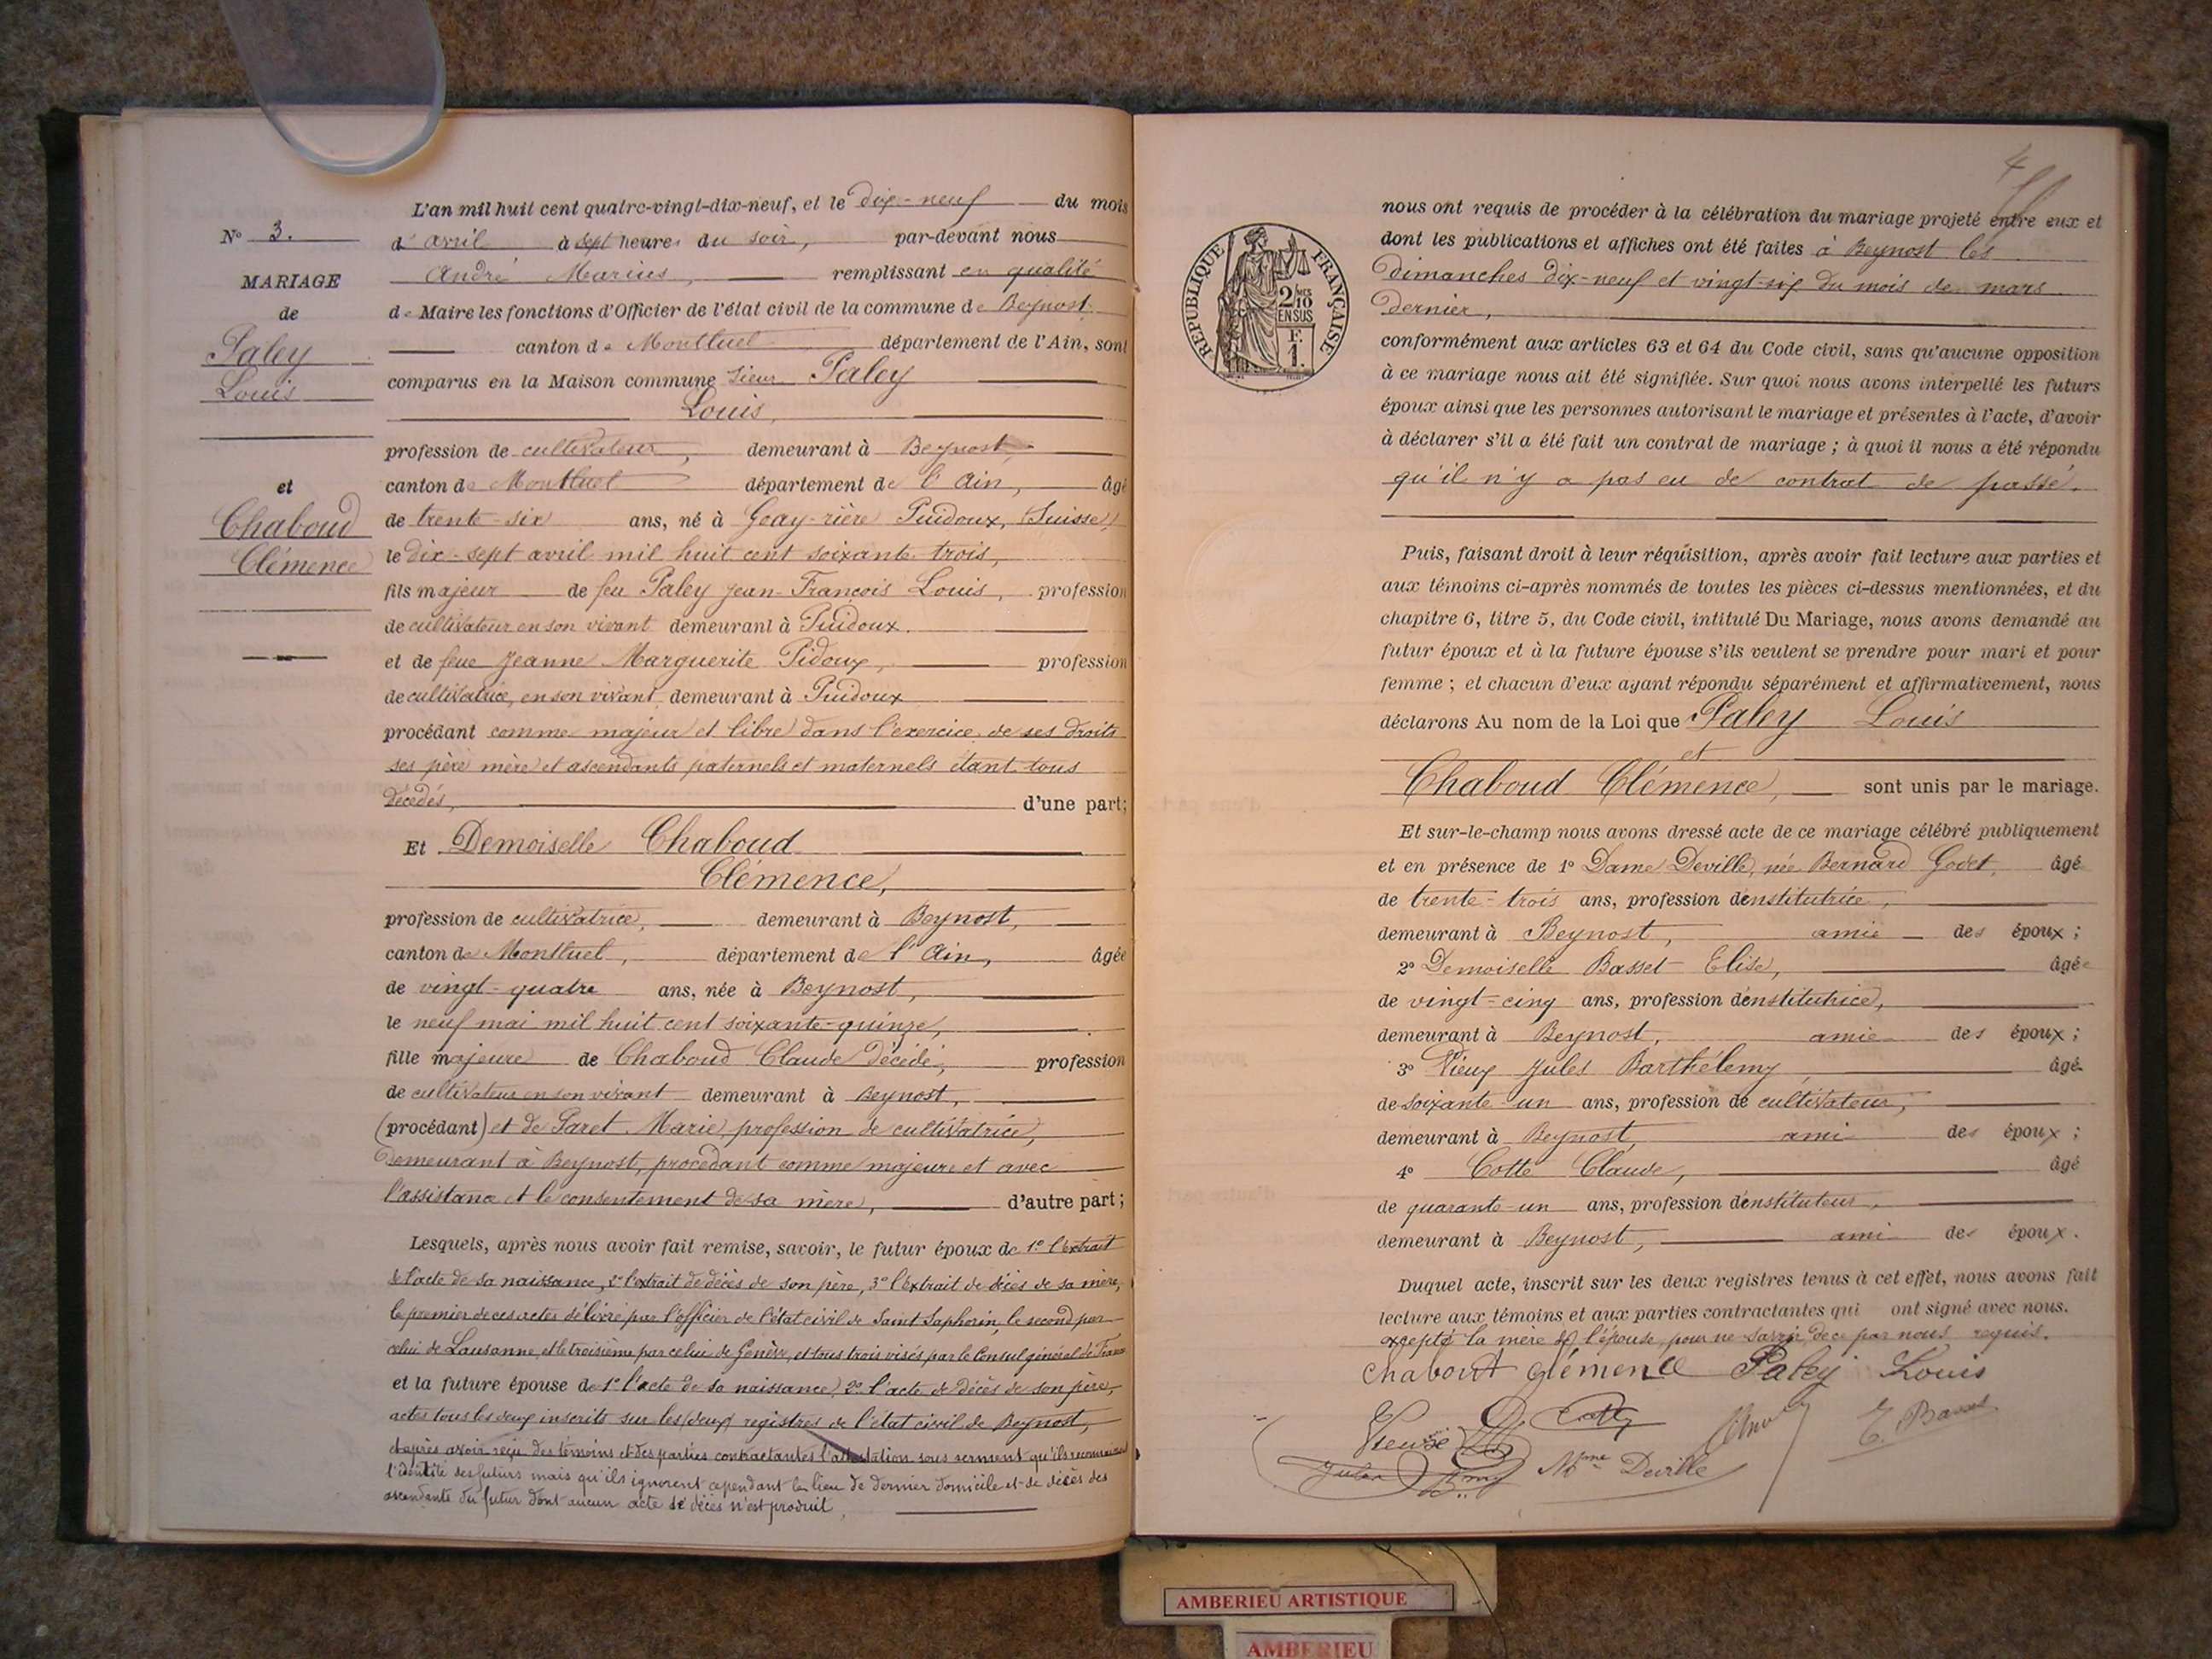 L'an mil huit cent quatre-vingt-dix-neuf, et le dix-neuf du mois
N° 3.
d'avril à sept heures du soir, par-devant nous
André Marius, remplissant en qualité
MARIAGE
de Maire les fonctions d'Officier de l'état civil de la commune de Beynost
de
canton de Montluel département de l'Ain, sont
Paley
comparus en la Maison commune sieur Paley
Louis
Louis,
profession de cultivateur, demeurant à Beynost,
et
canton de Montluel département de l'Ain, âgé
Chaboud
de trente-six ans, né à Geay-rière Puidoux, (Suisse)
Clémence
le dix-sept avril mil huit cent soixante trois,
fils majeur de feu Paley Jean-François Louis, profession
de cultivateur en son vivant demeurant à Puidoux.
et de feue Jeanne Marguerite Pidoux, profession
de cultivatrice, en son vivant demeurant à Puidoux
procédant comme majeur et libre dans l'exercice de ses droits
ses père mère et ascendants paternels et maternels étant tous
décédés, d'une part;
Et Demoiselle Chaboud
Clémence,
profession de cultivatrice, demeurant à Beynost,
canton de Montluel, département de l'Ain, âgée
de vingt-quatre ans, née à Beynost,
le neuf mai mil huit cent soixante-quinze,
fille majeure de Chaboud Claude décédé, profession
de cultivateur en son vivant demeurant à Beynost,
(procédant) et de Paret Marie, profession de cultivatrice,
demeurant à Beynost, procédant comme majeure et avec
l'assistance et le consentement de sa mère, d'autre part;
Lesquels, après nous avoir fait remise, savoir, le futur époux de 1° l'extrait
de l'acte de sa naissance, 2° l'extrait de décès de son père, 3° l'extrait de décès de sa mère,
le premier de ces actes délivré par l'officier de l'état civil de Saint Saphorin, le second par
celui de Lausanne, et le troisième par celui de Genève, et tous trois visés par le Consul général de France
et la future épouse de 1° l'acte de sa naissance, 2° l'acte de décès de son père,
actes tous les deux inscrits sur les (deux) registres de l'état civil de Beynost,
et après avoir reçu des témoins et des parties contractantes l'attestation sous serment qu'ils reconnaissent
l'identité des futurs mais qu'ils ignorent cependant le lieu de dernier domicile et de décès des
ascendants du futur dont aucun acte de décès n'est produit,
4
RÉPUBLIQUE FRANÇAISE
2 MES 10
EN SUS
F.
1.
nous ont requis de procéder à la célébration du mariage projeté entre eux et
dont les publications et affiches ont été faites à Beynost les
dimanches dix-neuf et vingt-six du mois de mars
dernier,
conformément aux articles 63 et 64 du Code civil, sans qu'aucune opposition
à ce mariage nous ait été signifiée. Sur quoi nous avons interpellé les futurs
époux ainsi que les personnes autorisant le mariage et présentes à l'acte, d'avoir
à déclarer s'il a été fait un contrat de mariage; à quoi il nous a été répondu
qu'il n'y a pas eu de contrat de passé.
Puis, faisant droit à leur réquisition, après avoir fait lecture aux parties et
aux témoins ci-après nommés de toutes les pièces ci-dessus mentionnées, et du
chapitre 6, titre 5, du Code civil, intitulé Du Mariage, nous avons demandé au
futur époux et à la future épouse s'ils veulent se prendre pour mari et pour
femme; et chacun d'eux ayant répondu séparément et affirmativement, nous
déclarons Au nom de la Loi que Paley Louis
et
Chaboud Clémence, sont unis par le mariage.
Et sur-le-champ nous avons dressé acte de ce mariage célébré publiquement
et en présence de 1° Dame Deville, née Bernard Godet, âgé
de trente-trois ans, profession d'institutrice,
demeurant à Beynost, amie des époux;
2° Demoiselle Basset Elise, âgée
de vingt-cinq ans, profession d'institutrice,
demeurant à Beynost, amie des époux;
3° Vieux Jules Barthélemy, âgé
de soixante-un ans, profession de cultivateur,
demeurant à Beynost, ami des époux;
4° Cotte Claude, âgé
de quarante-un ans, profession d'instituteur,
demeurant à Beynost, ami des époux.
Duquel acte, inscrit sur les deux registres tenus à cet effet, nous avons fait
lecture aux témoins et aux parties contractantes qui ont signé avec nous.
excepté la mère de l'épouse, pour ne savoir, de ce par nous requis.
Chaboud Clémence Paley Louis
Vieux Cotte E. Basset
Jules Bmy Mme Deville
AMBERIEU ARTISTIQUE
AMBERIEU